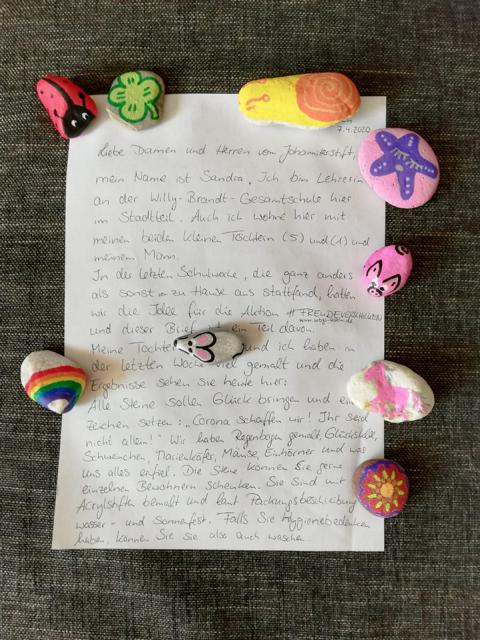 7.4.2020
Liebe Damen und Herren vom Johannisstift,
mein Name ist Sandra. Ich bin Lehrerin
an der Willy-Brandt-Gesamtschule hier
im Stadtteil. Auch ich wohne hier mit
meinen beiden kleinen Töchtern (5) und (1) und
meinem Mann.
In der letzten Schulwoche, die ganz anders
als sonst - zu Hause aus stattfand, hatten
wir die Idee für die Aktion #FREUDEVERSCHICKEN
und dieser Brief ist ein Teil davon.
Meine Töchter und ich haben in
der letzten Woche viel gemalt und die
Ergebnisse sehen Sie heute hier:
Alle Steine sollen Glück bringen und ein
Zeichen setzen: "Corona schaffen wir! Ihr seid
nicht allein!" Wir haben Regenbogen gemalt, Glücksklee,
Schweinchen, Marienkäfer, Mäuse, Einhörner und was
uns alles einfiel. Die Steine können Sie gerne
einzelnen Bewohnern schenken. Sie sind mit
Acrylstiften bemalt und laut Packungsbeschreibung
wasser- und sonnenfest. Falls Sie Hygienebedenken
haben, können Sie sie also auch waschen.